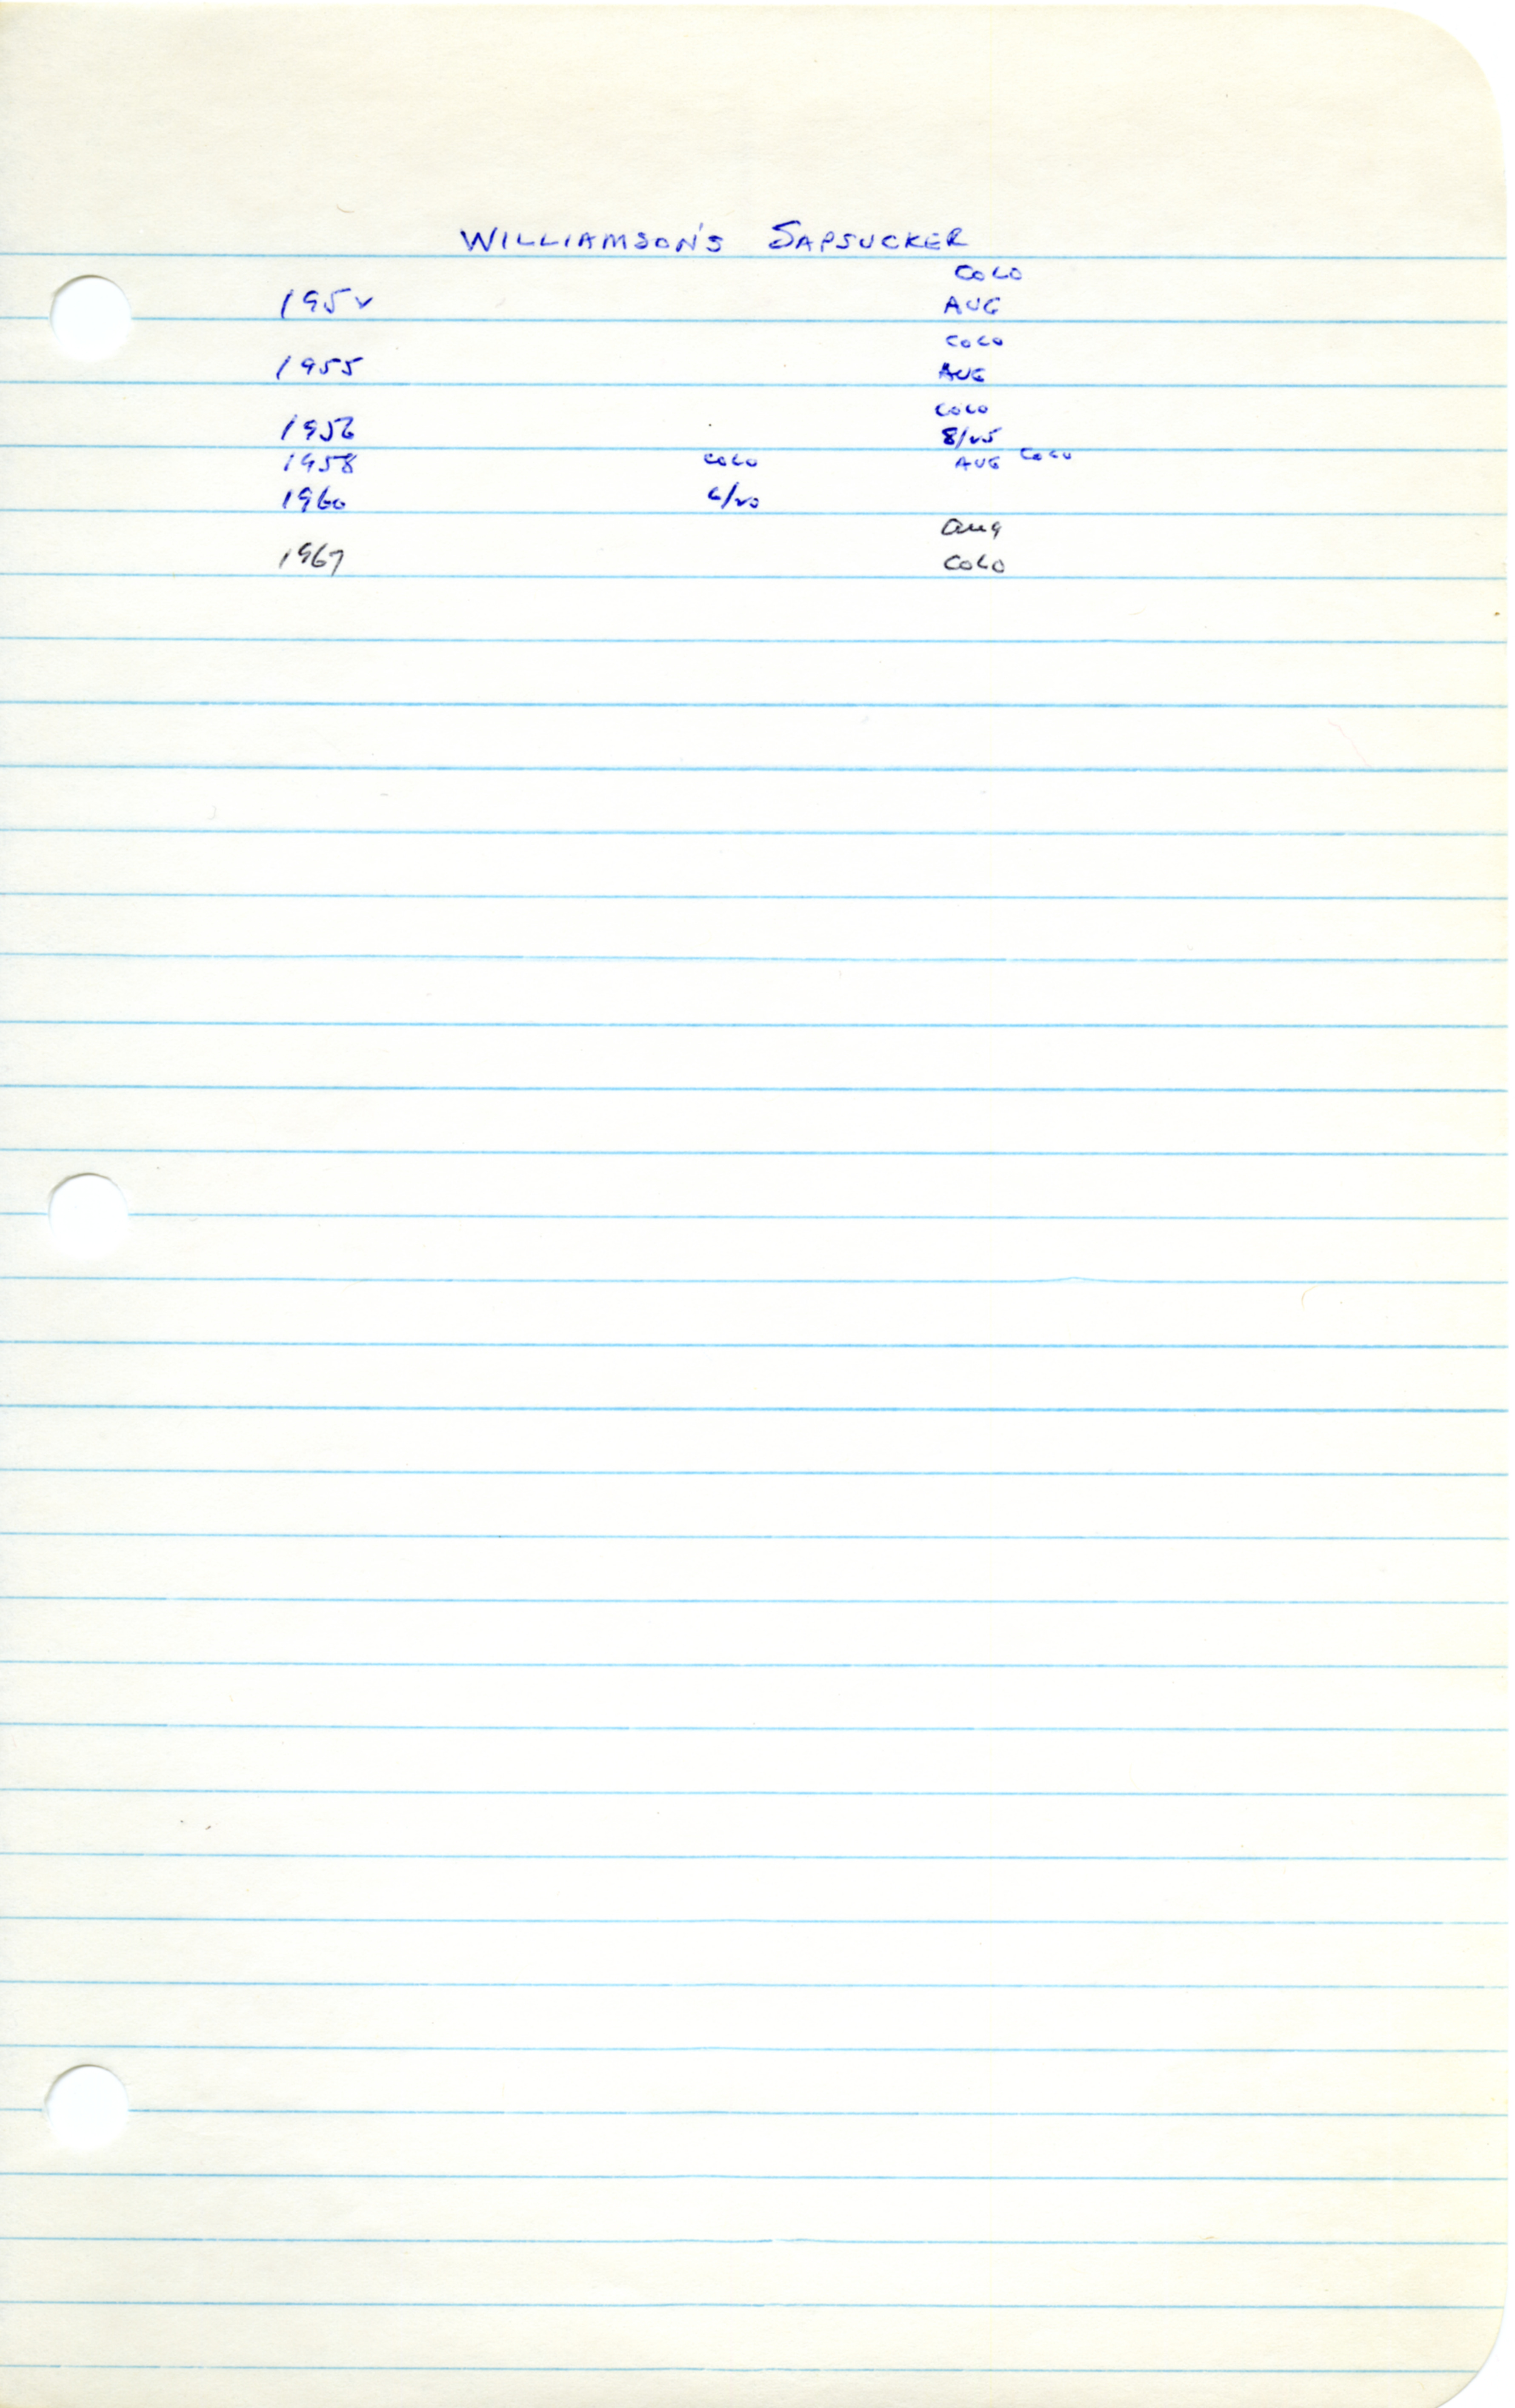 WILLIAMSON'S SAPSUCKER
COLO
1952 AUG
COLO
1955 AUG
COLO
1956 8/25
1958 COLO AUG COLO
1960 6/20
Aug
1967 COLO